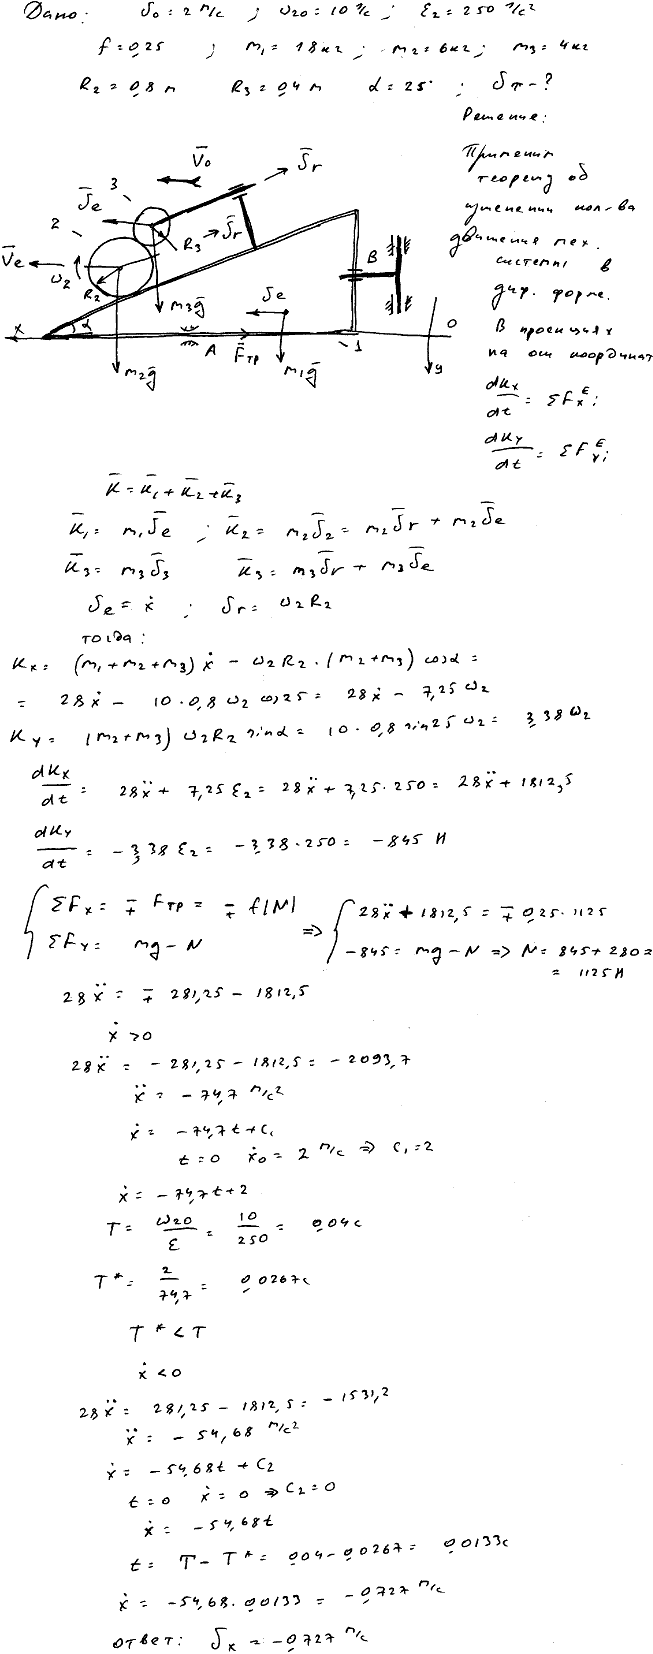 Дано: V₀ = 2 м/с ; ω₂₀ = 10 1/с ; ε₂ = 250 1/с²
f = 0,25 ; m₁ = 18 кг ; m₂ = 6 кг ; m₃ = 4 кг
R₂ = 0,8 м R₃ = 0,4 м α = 25° ; Vт - ?
Решение:
Применим
теорему об
изменении кол-ва
движения мех.
системы в
диф. форме.
В проекциях
на оси координат
dKx/dt = ΣFxᴱi
dKy/dt = ΣFyᴱi
V̄₀
V̄r
3
V̄e
2
R₃
V̄r
V̄e
ω₂
R₂
B
m₃ḡ
V̄e
x
α
A
F̄тр
1
0
m₂ḡ
m₁ḡ
y
K̄ = K̄₁ + K̄₂ + K̄₃
K̄₁ = m₁V̄e ; K̄₂ = m₂V̄₂ = m₂V̄r + m₂V̄e
K̄₃ = m₃V̄₃ K̄₃ = m₃V̄r + m₃V̄e
Ve = ẋ ; Vr = ω₂R₂
тогда:
Kx = (m₁ + m₂ + m₃) ẋ - ω₂R₂ · (m₂ + m₃) cosα =
= 28ẋ - 10 · 0,8 ω₂ cos25 = 28ẋ - 7,25 ω₂
Ky = (m₂ + m₃) ω₂R₂ sinα = 10 · 0,8 sin25 ω₂ = 3,38 ω₂
dKx/dt = 28ẍ + 7,25 ε₂ = 28ẍ + 7,25 · 250 = 28ẍ + 1812,5
dKy/dt = -3,38 ε₂ = -3,38 · 250 = -845 Н
{ ΣFx = ∓ Fтр = ∓ f|N| ⇒ { 28ẍ + 1812,5 = ∓ 0,25 · 1125
ΣFy = mg - N -845 = mg - N ⇒ N = 845 + 280 =
= 1125 Н
28ẍ = ∓ 281,25 - 1812,5
ẋ > 0
28ẍ = -281,25 - 1812,5 = -2093,7
ẍ = -74,7 м/с²
ẋ = -74,7t + C₁
t = 0 ẋ₀ = 2 м/с ⇒ C₁ = 2
ẋ = -74,7t + 2
T = ω₂₀/ε = 10/250 = 0,04 с
T* = 2/74,7 = 0,0267 с
T* < T
ẋ < 0
28ẍ = 281,25 - 1812,5 = -1531,2
ẍ = -54,68 м/с²
ẋ = -54,68t + C₂
t = 0 ẋ = 0 ⇒ C₂ = 0
ẋ = -54,68t
t = T - T* = 0,04 - 0,0267 = 0,0133 с
ẋ = -54,68 · 0,0133 = -0,727 м/с
ответ: Vx = -0,727 м/с